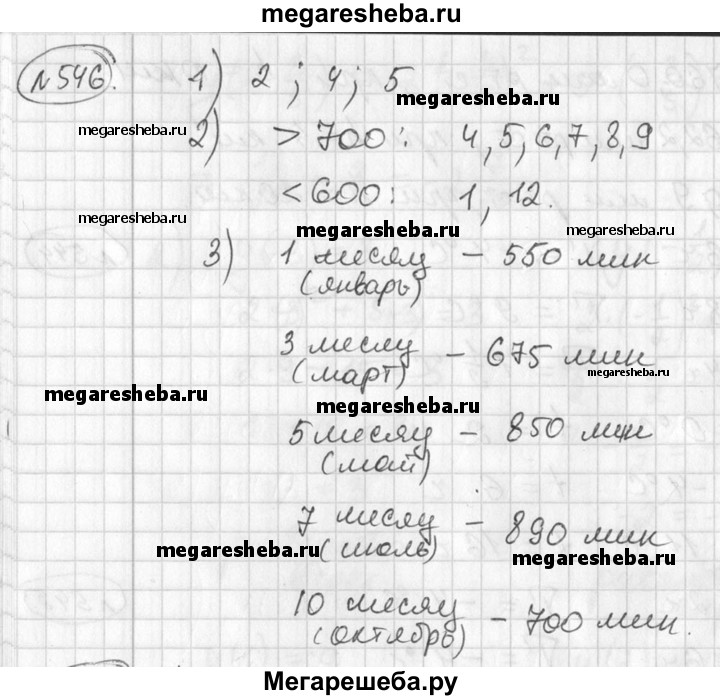 megaresheba.ru
№546. 1) 2 ; 4 ; 5
megaresheba.ru
megaresheba.ru
2) > 700: 4, 5, 6, 7, 8, 9
< 600: 1, 12.
megaresheba.ru
megaresheba.ru
megaresheba.ru
3) 1 месяц - 550 мин
(январь)
3 месяц - 675 мин
(март)
megaresheba.ru
megaresheba.ru
megaresheba.ru
5 месяц - 850 мин
(май)
7 месяц - 890 мин
(июль)
megaresheba.ru
megaresheba.ru
10 месяц - 700 мин.
(октябрь)
Мегарешеба.ру